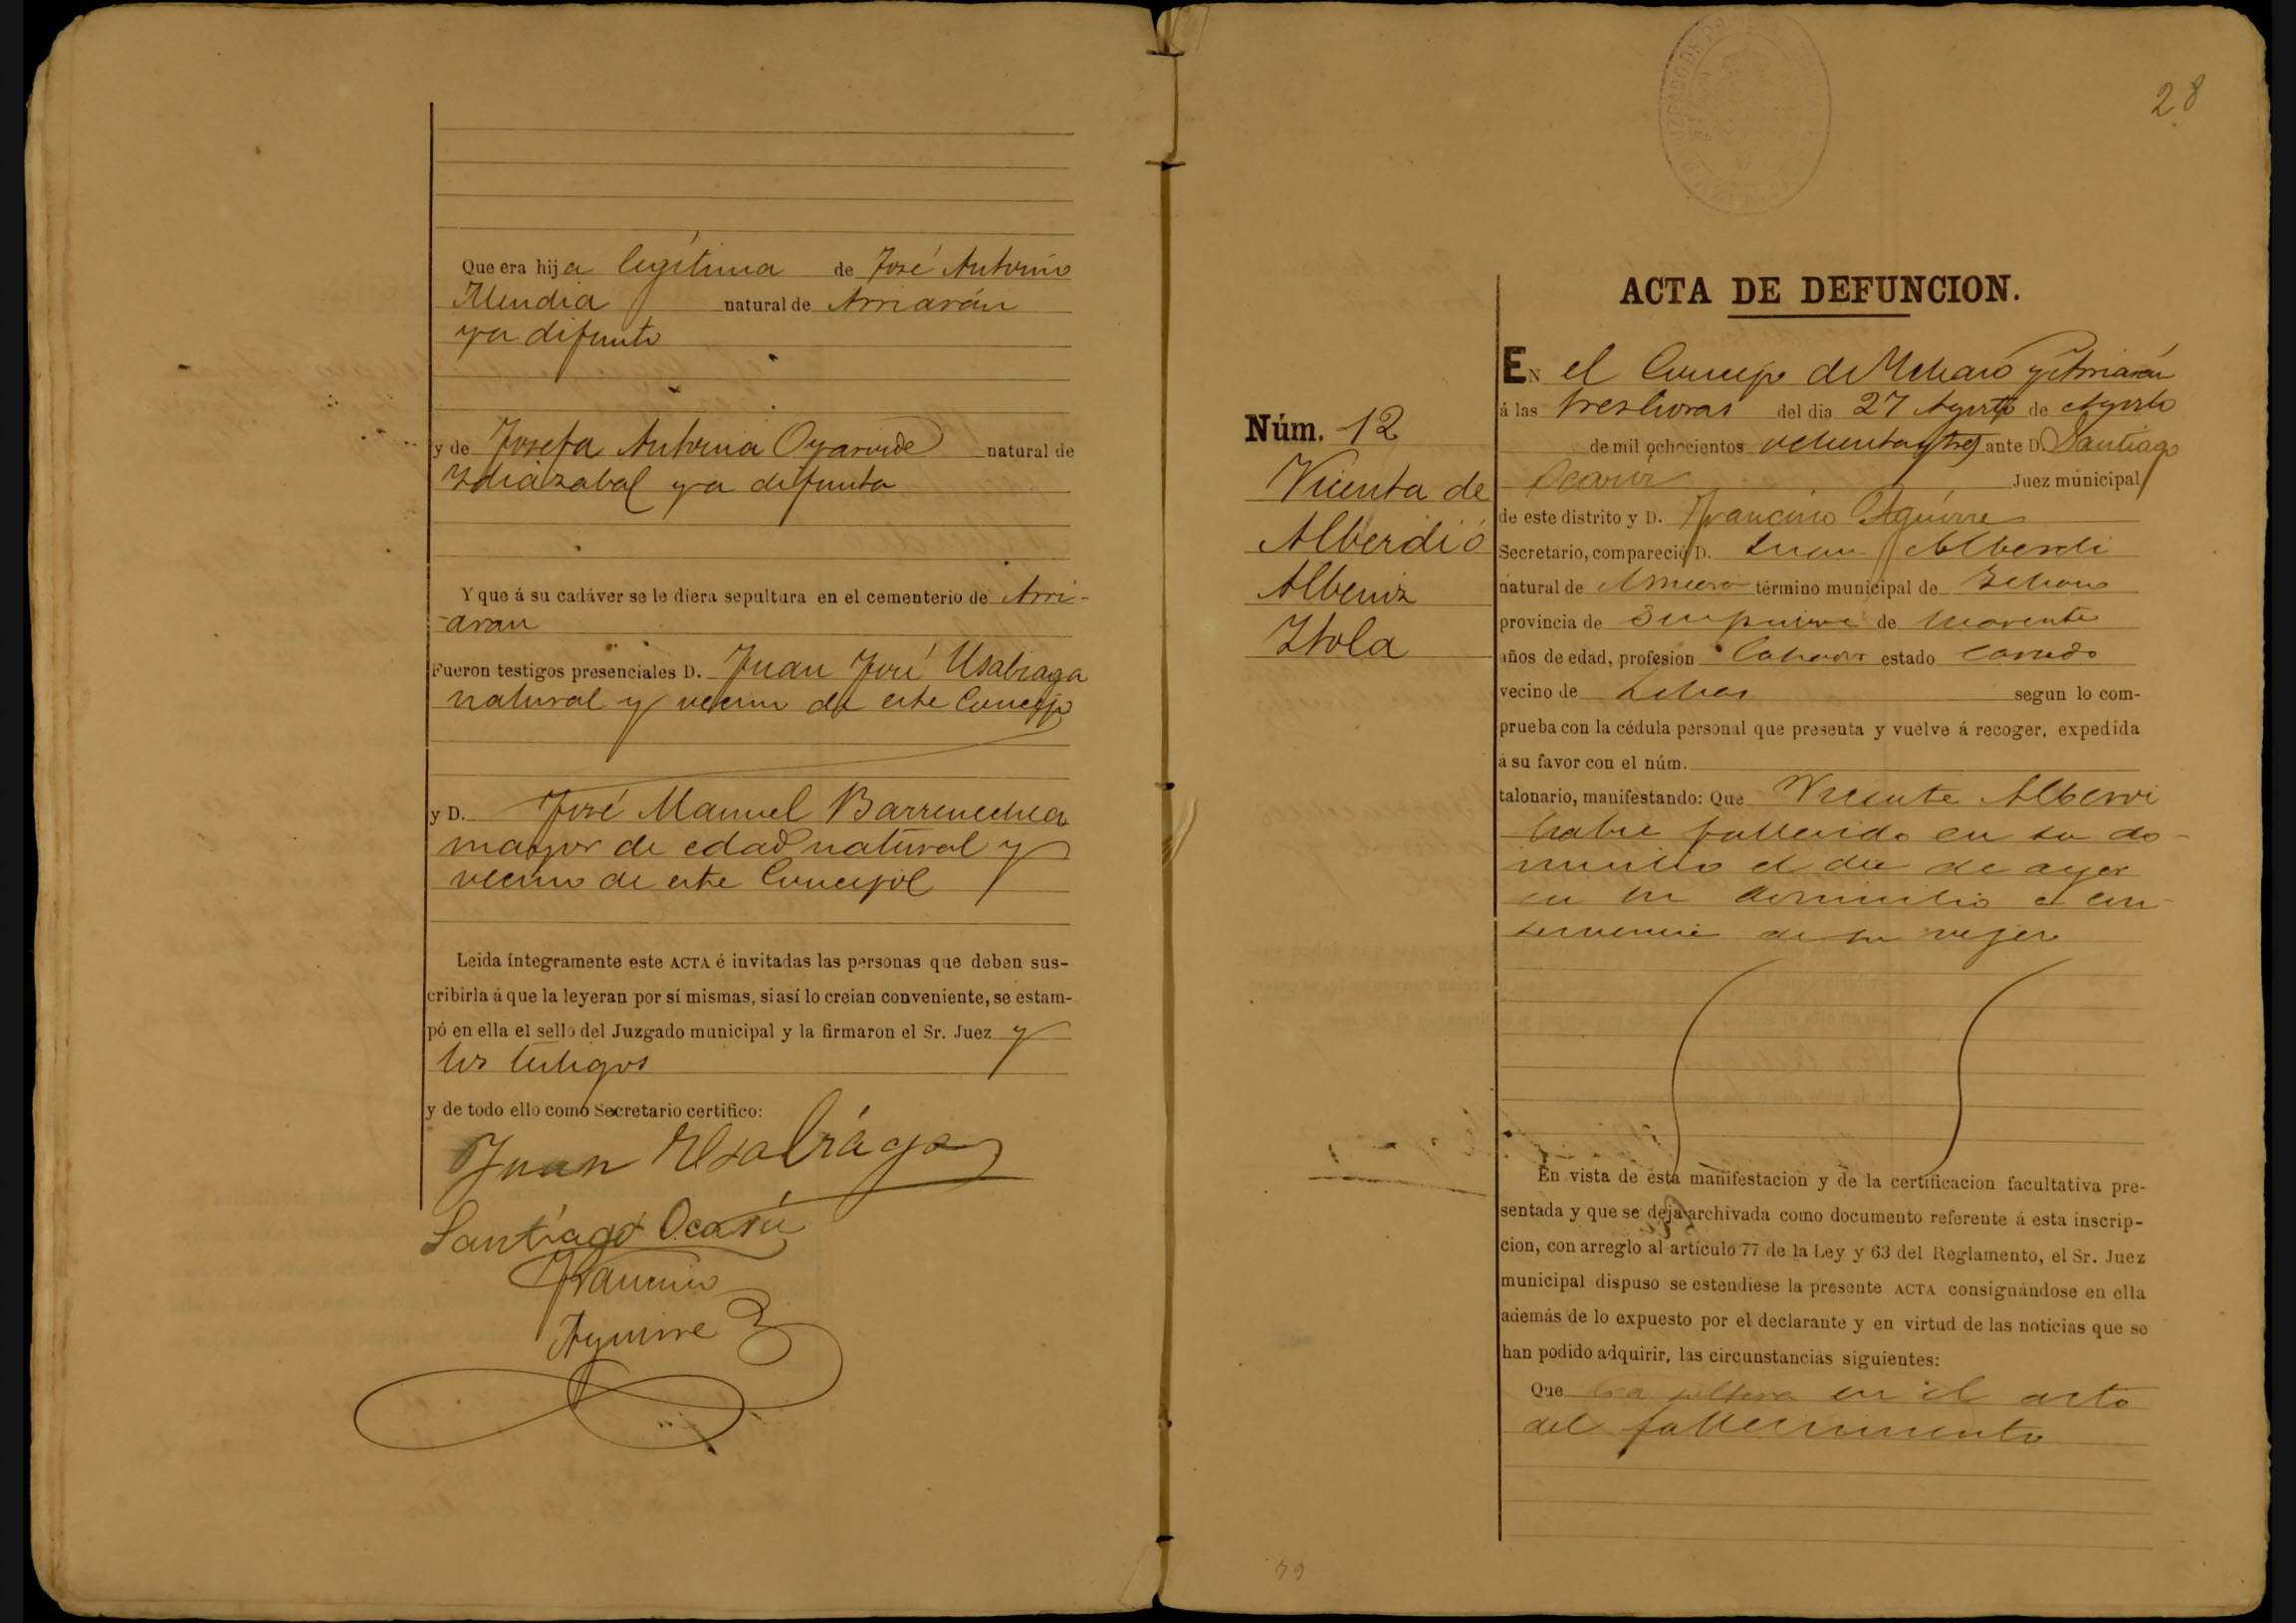 Que era hija legítima de José Antonio
Mendia natural de Arriarán
ya difunto
y de Josefa Antonia Oyarvide natural de
Idiazabal ya difunta
Y que á su cadáver se le diera sepultura en el cementerio de Arri-
aran
Fueron testigos presenciales D. Juan José Usabiaga
natural y vecino de este Concejo
y D. José Manuel Barrenechea
mayor de edad natural y
vecino de este Concejo
Leida íntegramente este ACTA é invitadas las personas que deben sus-
cribirla á que la leyeran por sí mismas, si así lo creian conveniente, se estam-
pó en ella el sello del Juzgado municipal y la firmaron el Sr. Juez y
los testigos
y de todo ello como Secretario certifico:
Juan Usabiaga
Santiago Ocariz
Francisco
Aguirre
28
ACTA DE DEFUNCION.
Núm. 12
Vicenta de
Alberdi ó
Albeniz
Ztola
EN el Concejo de y Arriarán
á las tres horas del dia 27 Agosto de Agosto
de mil ochocientos ochenta y tres ante D. Santiago
Ocariz Juez municipal
de este distrito y D. Francisco Aguirre
Secretario, compareció D. Juan Alberdi
natural de término municipal de
provincia de de
años de edad, profesion Labrador estado casado
vecino de segun lo com-
prueba con la cédula personal que presenta y vuelve á recoger, expedida
á su favor con el núm.
talonario, manifestando: Que Vicente
habia fallecido en su do-
micilio el dia de ayer
en su domicilio á con-
de su vejez
En vista de ésta manifestacion y de la certificacion facultativa pre-
sentada y que se deja archivada como documento referente á esta inscrip-
cion, con arreglo al artículo 77 de la Ley y 63 del Reglamento, el Sr. Juez
municipal dispuso se estendiese la presente ACTA consignándose en ella
además de lo expuesto por el declarante y en virtud de las noticias que se
han podido adquirir, las circunstancias siguientes:
Que era soltera en el acto
del fallecimiento
79